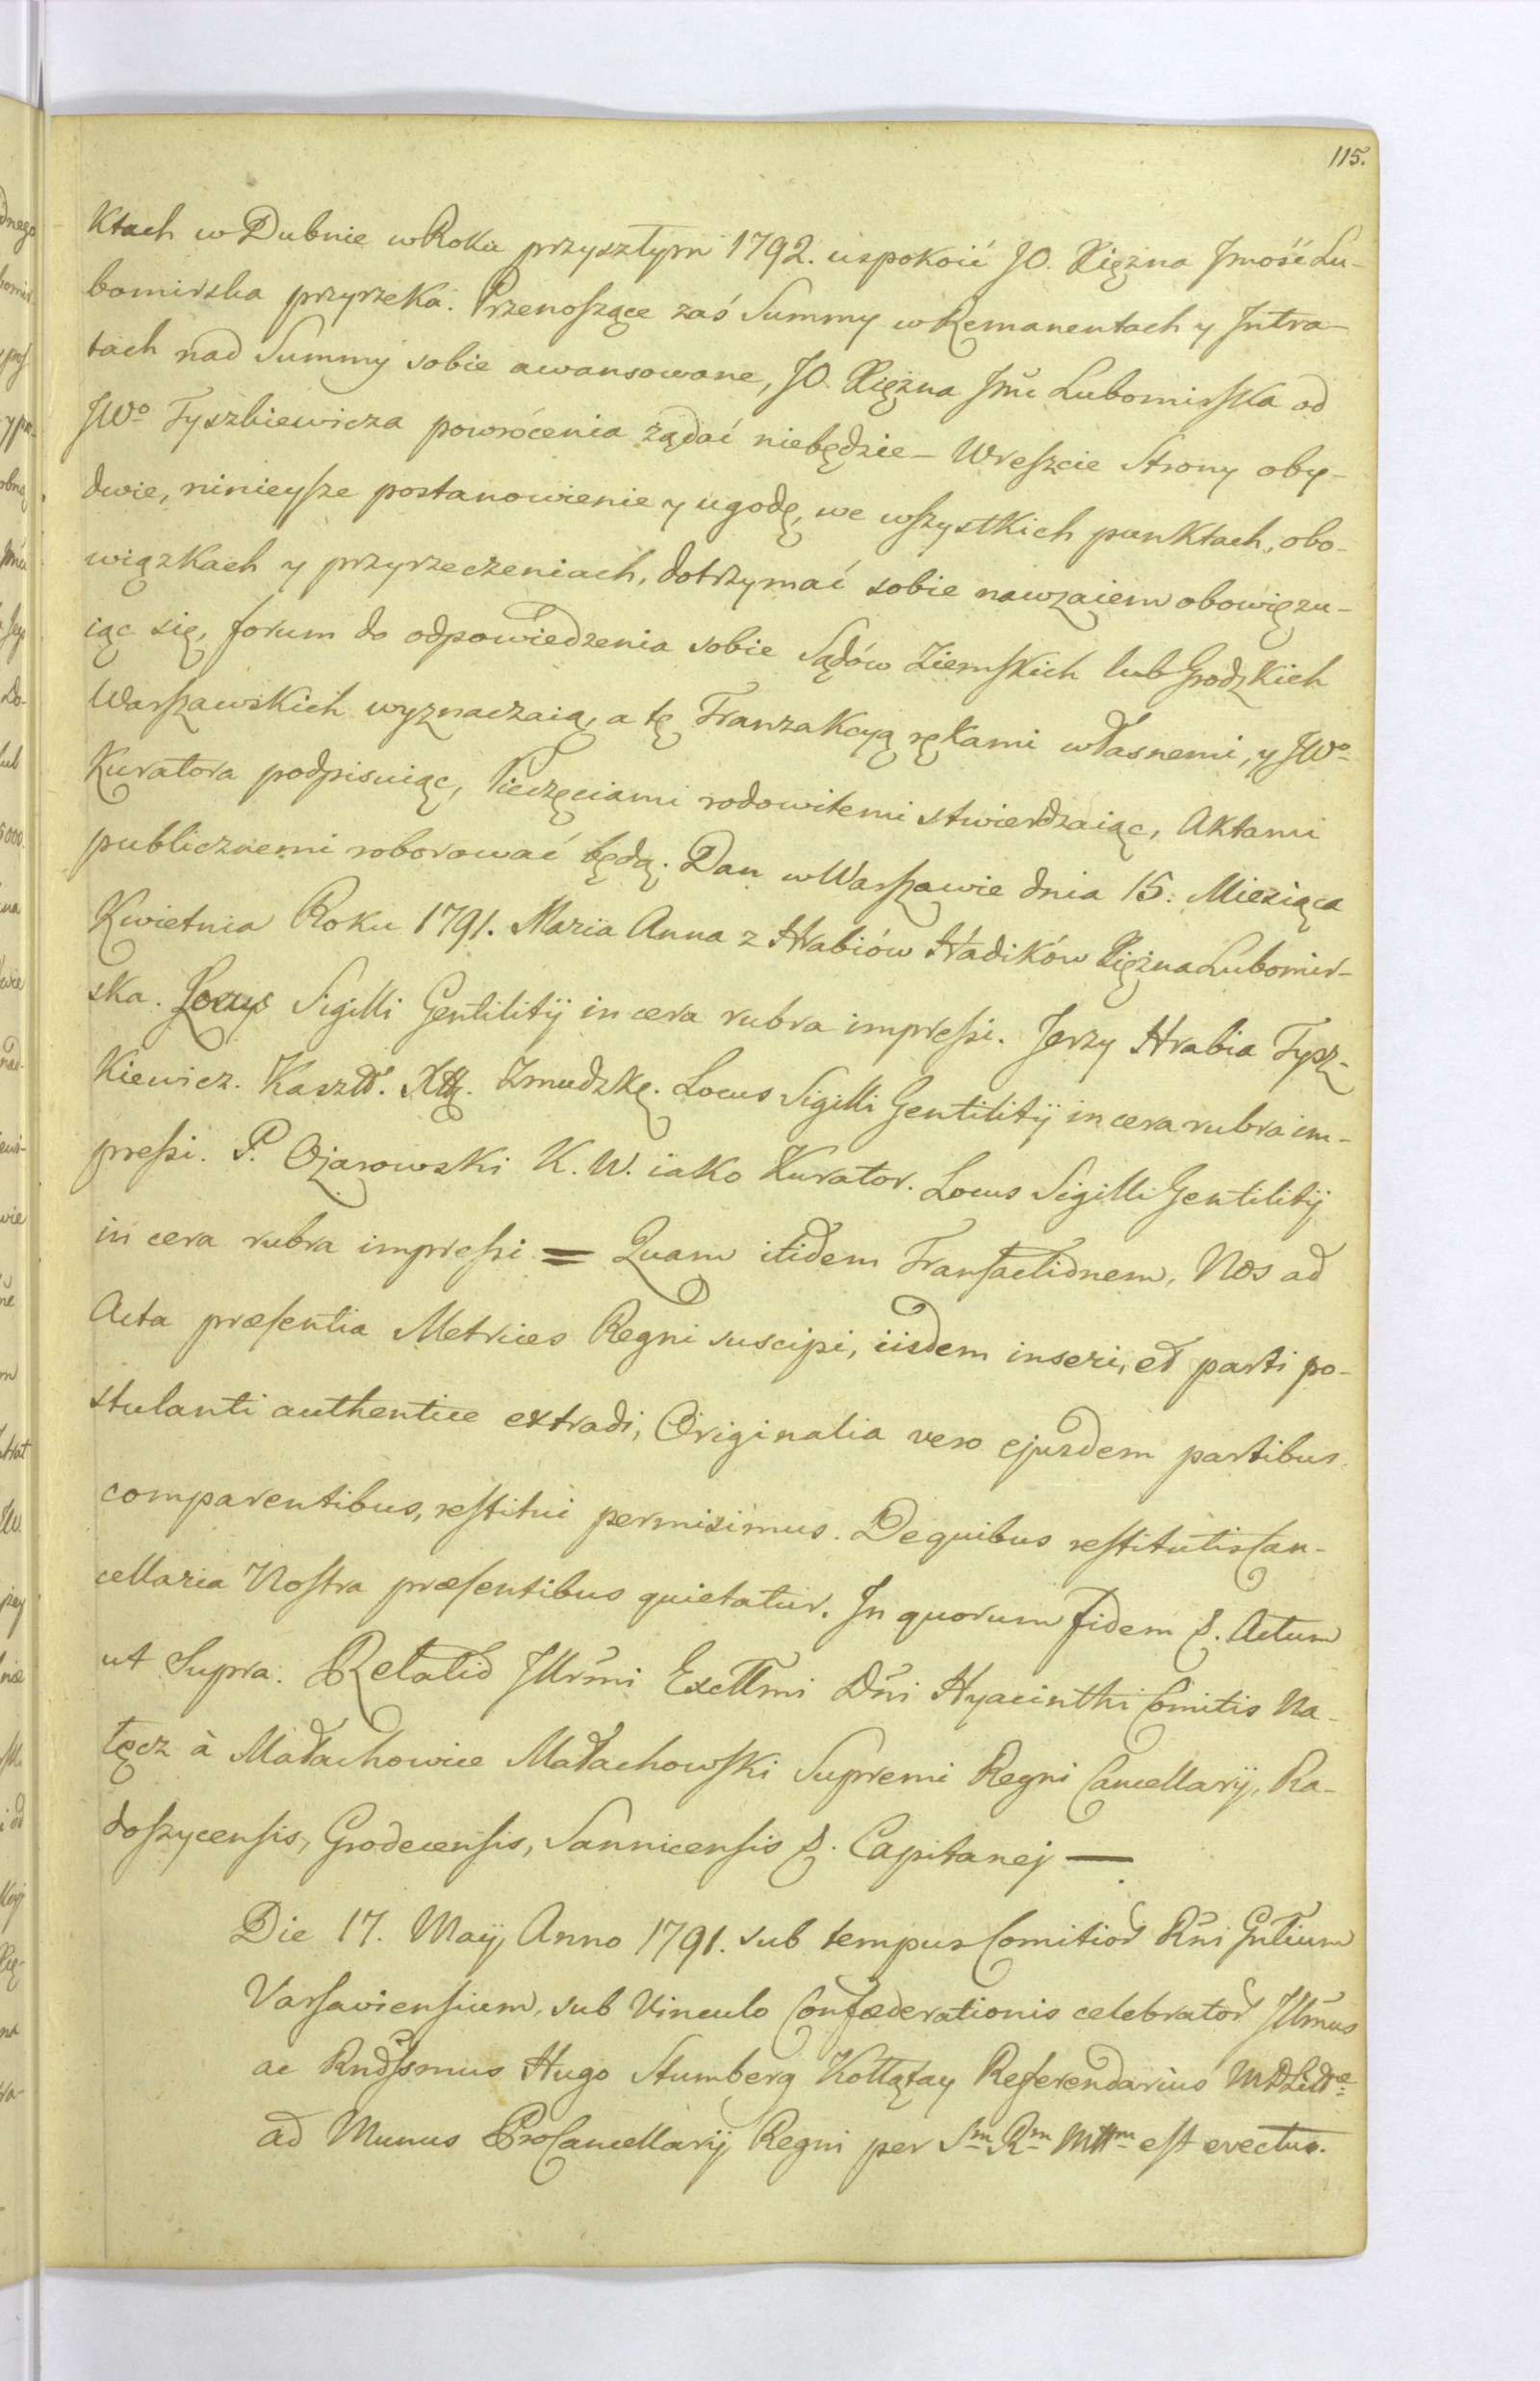 115.
Ktach w Dubnie w Roku przyszłym 1792. uspokoić JO. Xiężna Jmość Lu-
bomirska przyrzeka. Przenoszące zaś Summy w Remanentach y Intra-
tach nad Summy sobie awansowane, JO. Xiężna Jmć Lubomirska od
JWo Tyszkiewicza powrócenia żądać niebędzie – Wreszcie Strony oby-
dwie, ninieysze postanowienie y ugodę, we wszystkich punktach, obo-
wiązkach y przyrzeczeniach, dotrzymać sobie nawzaiem obowięzu-
iąc się, forum do odpowiedzenia sobie Sądów Ziemskich lub Grodzkich
Warszawskich wyznaczaią, a tę Tranzakcyą rękami własnemi, y JWo
Kuratora podpisuiąc, Pieczęciami rodowitemi stwierdzaiąc, Aktami
publicznemi roborować będą. Dan w Warszawie dnia 15. Miesiąca
Kwietnia Roku 1791. Maria Anna z Hrabiów Hadików Xiężna Lubomir-
ska. Locus Sigilli Gentilitij in cera rubra impressi. Jerzy Hrabia Tysz-
Kiewicz. Kasztl. Xtt. Zmudzkg. Locus Sigilli Gentilitij in cera rubra im-
pressi. P. Ożarowski K. W. iako Kurator. Locus Sigilli Gentilitij
in cera rubra impressi = Quam itidem Transactionem, Nos ad
Acta præsentia Metrices Regni suscipi, iisdem inseri, et parti po-
stulanti authentice extradi, Originalia vero ejusdem partibus
comparentibus, restitui permisimus. De quibus restitutis Can-
cellaria Nostra præsentibus quietatur. In quorum fidem &. Actum
ut Supra. Relatio Illrm̃i Excllm̃i Dñi Hyacinthi Comitis Na-
łęcz à Małachowice Małachowski Supremi Regni Cancellarij, Ra-
doszycensis, Grodecensis, Sannicensis &. Capitanej —
Die 17. Maij Anno 1791. sub tempus Comitior Rñi Gñlium
Varsaviensium, sub Vinculo Confæderationis celebrator Illm̃us
ac Rndssmus Hugo Stumberg Kołłątay Referendarius M D Litt
ad Munus ProCancellarij Regni per Sm Rm Mttm est evectus.